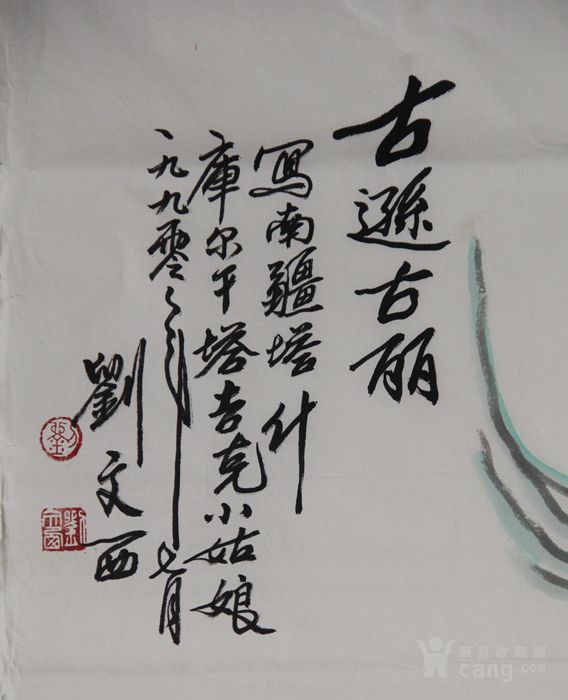 古遜古丽
寫南疆塔什
庫尔干塔吉克小姑娘
一九九零年七月
劉文西
華夏收藏網
cang.com